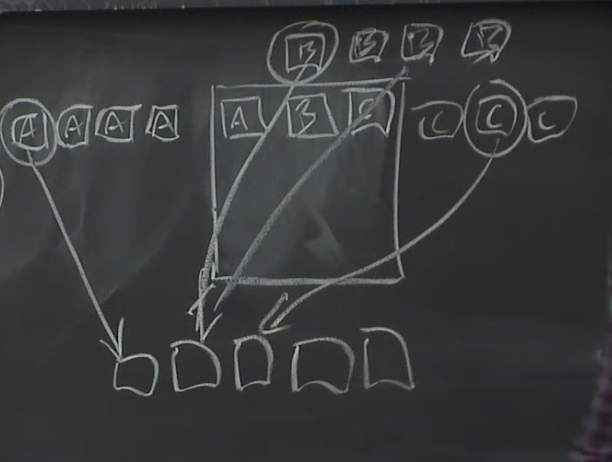 B B B B
A A A A A B C C C C